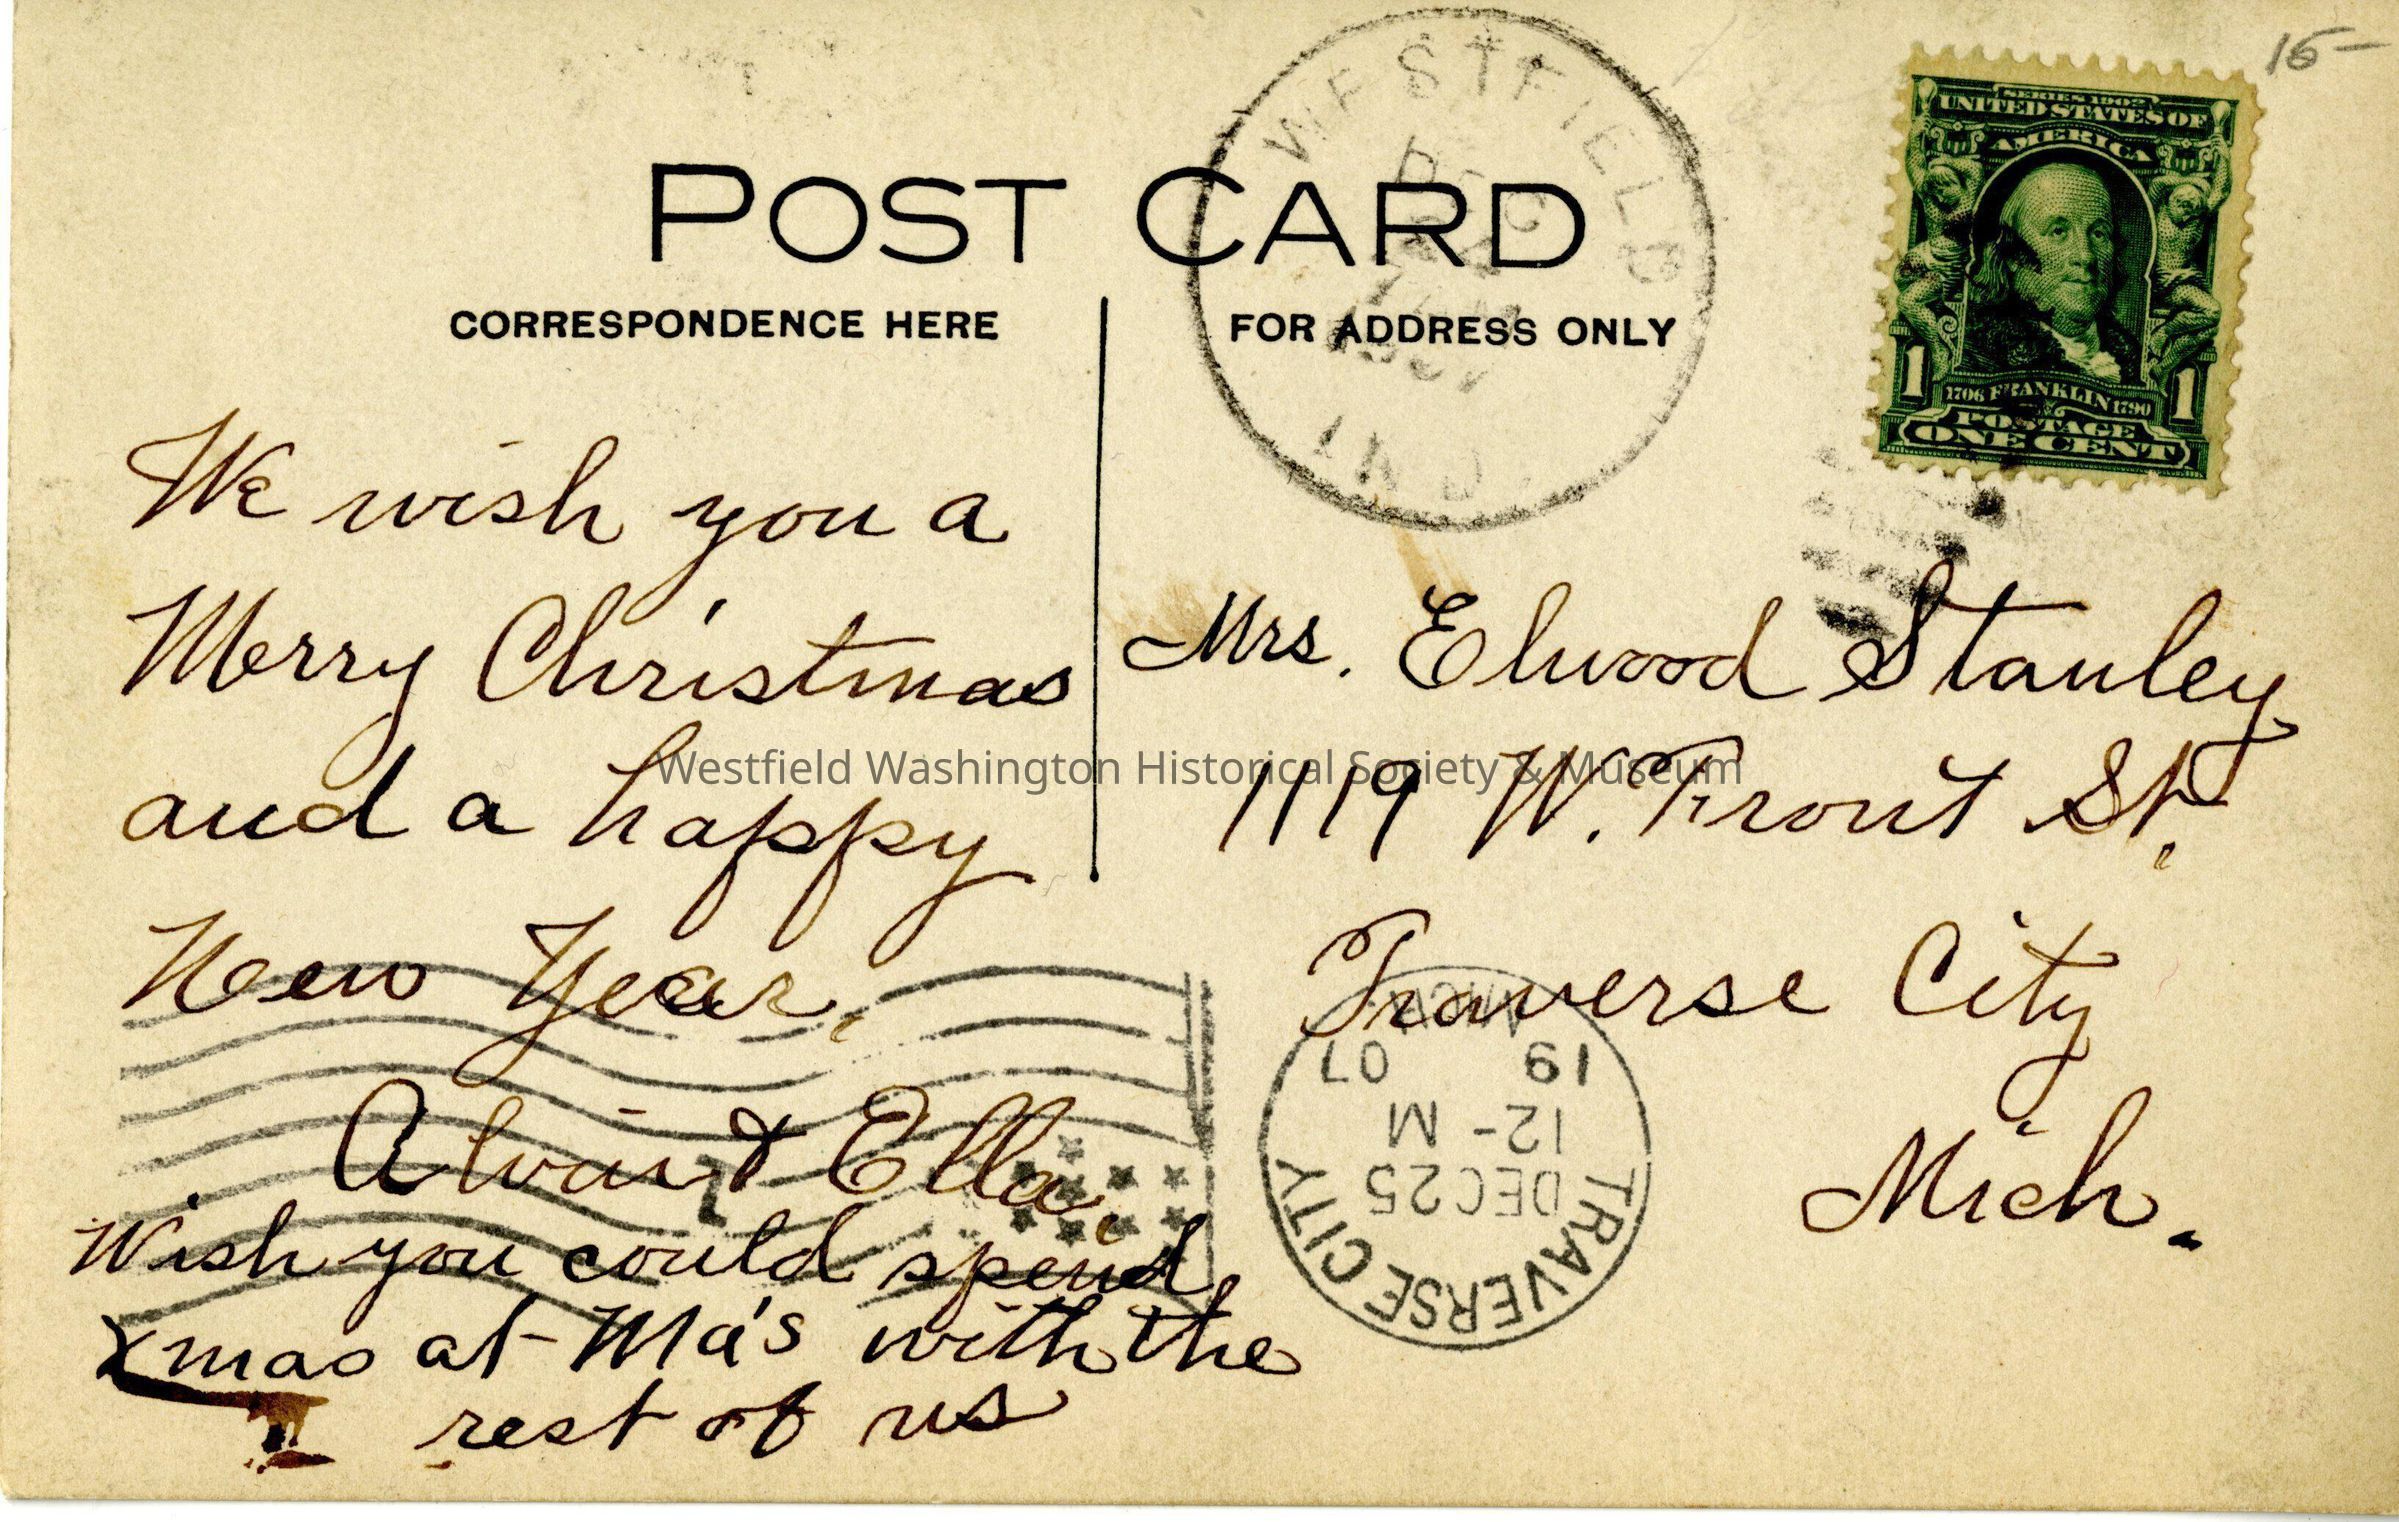 15-
WESTFIELD
DEC
1907
IND.
SERIES 1902
UNITED STATES OF
AMERICA
1 1
1706 FRANKLIN 1790
POSTAGE
ONE CENT
POST CARD
CORRESPONDENCE HERE
FOR ADDRESS ONLY
We wish you a
Merry Christmas
and a happy
New Year,
Alvin & Ella.
Wish you could spend
Xmas at Ma's with the
rest of us
Mrs. Elwood Stanley.
1119 W. Front St.
Traverse City
Mich.
TRAVERSE CITY
DEC 25
12-M
19 07
MICH.
1
Westfield Washington Historical Society & Museum